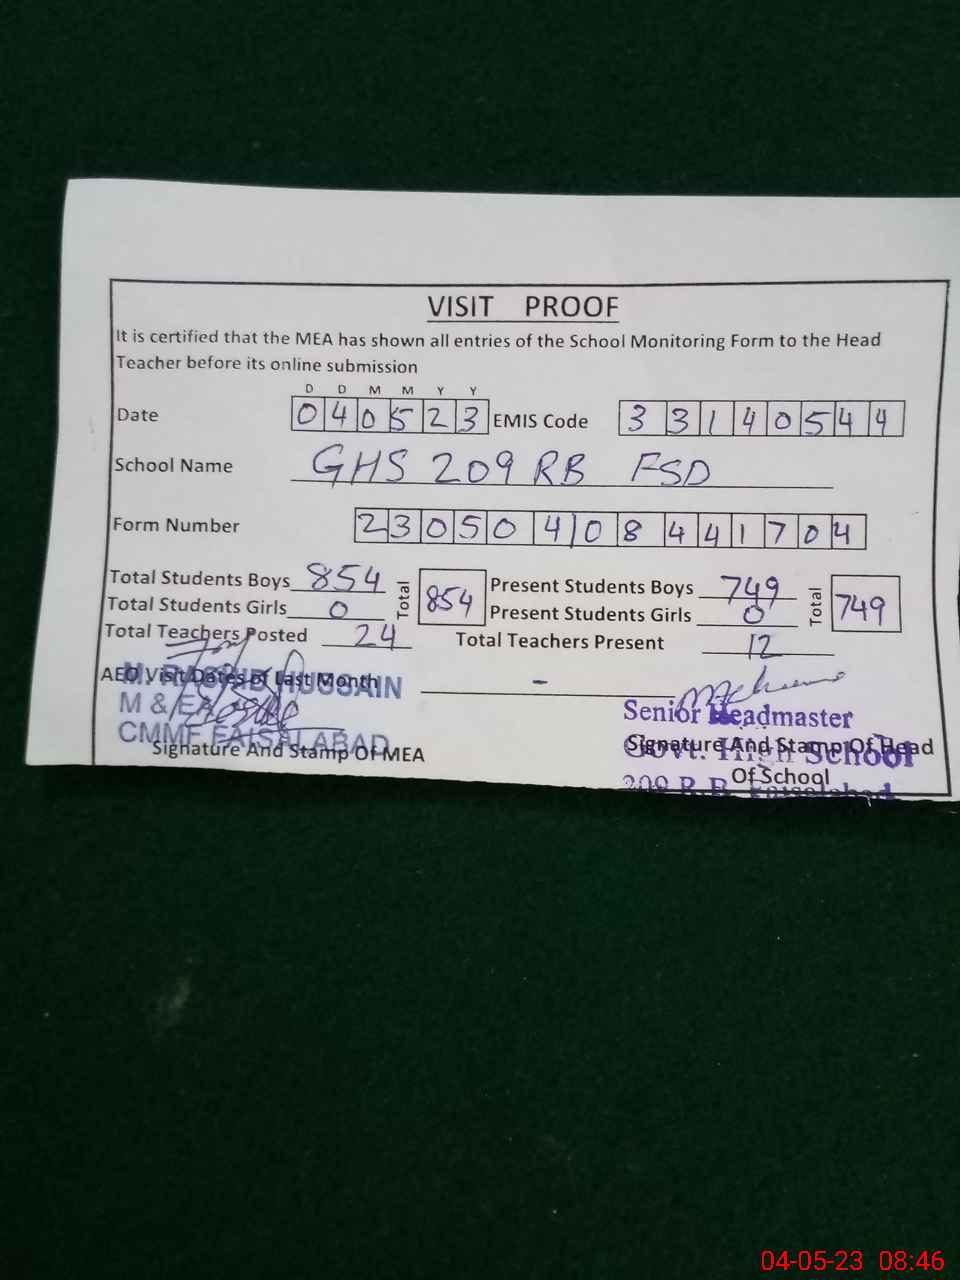 VISIT PROOF
It is certified that the MEA has shown all entries of the School Monitoring Form to the Head
Teacher before its online submission
D D M M Y Y
Date 0 4 0 5 2 3 EMIS Code 3 3 1 4 0 5 4 4
School Name GHS 209 RB FSD
Form Number 2 3 0 5 0 4 0 8 4 4 1 7 0 4
Total Students Boys 854 Total 854 Present Students Boys 749 Total 749
Total Students Girls 0 Present Students Girls 0
Total Teachers Posted 24 Total Teachers Present 12
AEO Visit Dates of Last Month -
HUSSAIN
M & EA
CMMF FAISALABAD
Signature And Stamp Of MEA
Senior Headmaster
Govt. High School
209 R.B. Faisalabad
Signature And Stamp Of Head
Of School
04-05-23 08:46